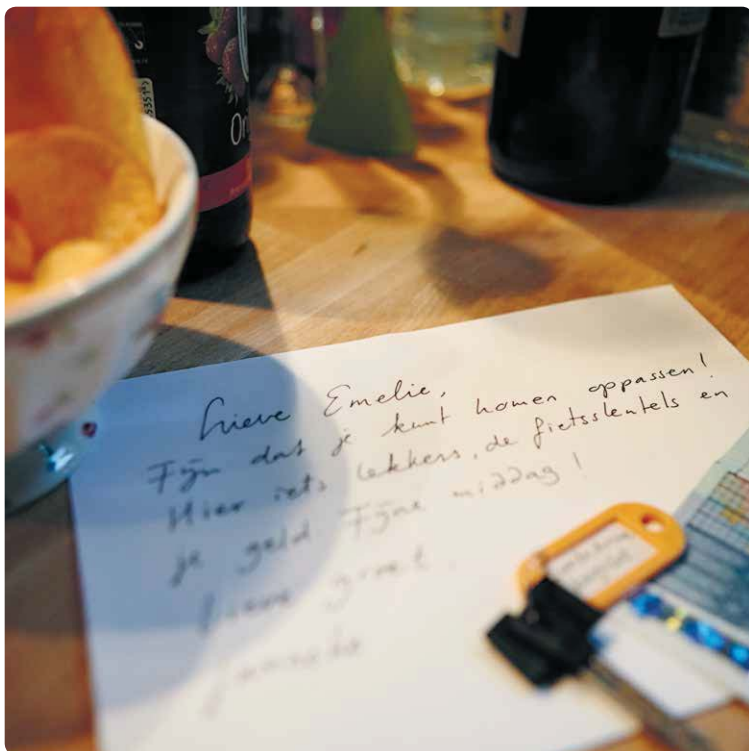 Or
Lieve Emelie,
Fijn dat je kunt komen oppassen!
Hier iets lekkers, de fietssleutels en
je geld Fijne middag!
Lieve groet
Janneke